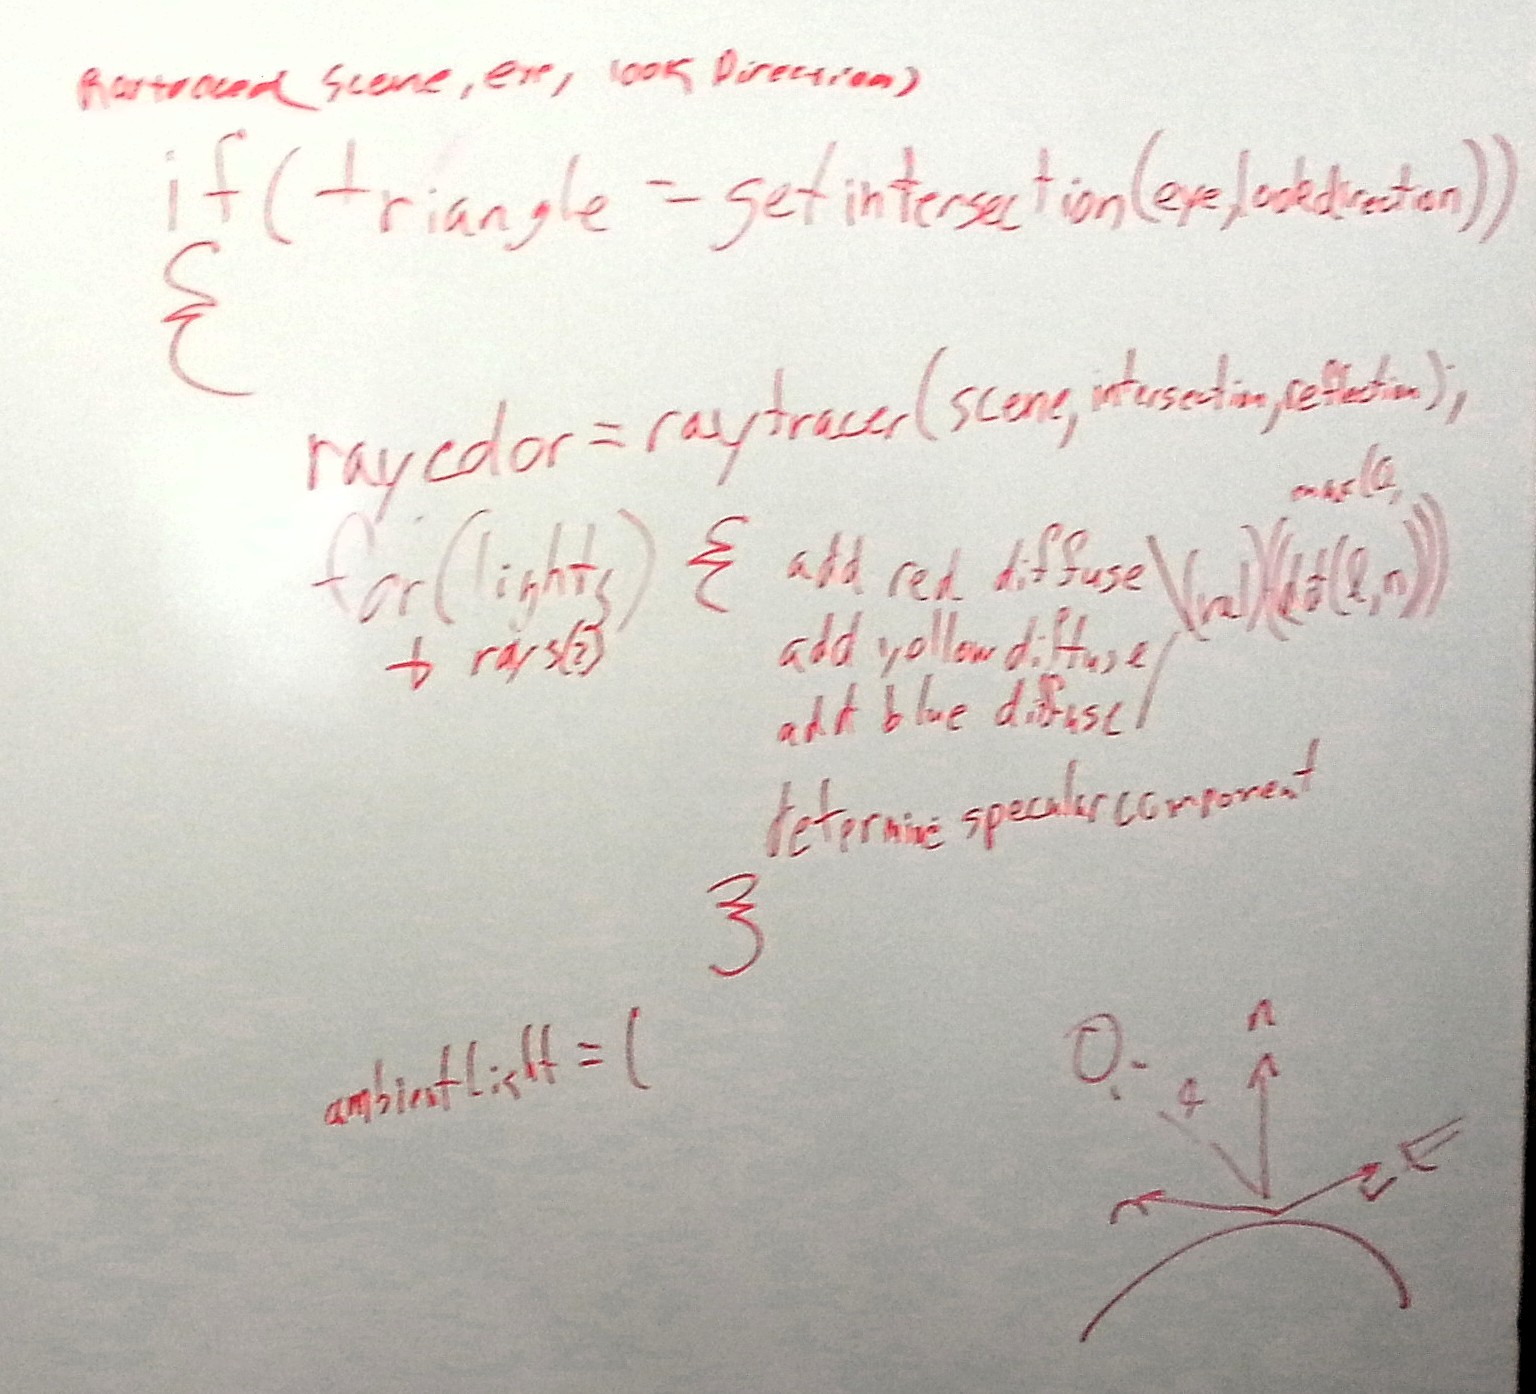 Scene, eye, look Direction)
if(triangle = getintersection(eye,lookdirection))
{
raycolor=raytracer(scene,intersection,reflection);
max(0,
for(lights) { add red diffuse \(val)(dot(l,n)))
+ rays(?) add yollow diffuse
add blue diffuse /
determine specular component
}
ambientLight = (
n
E